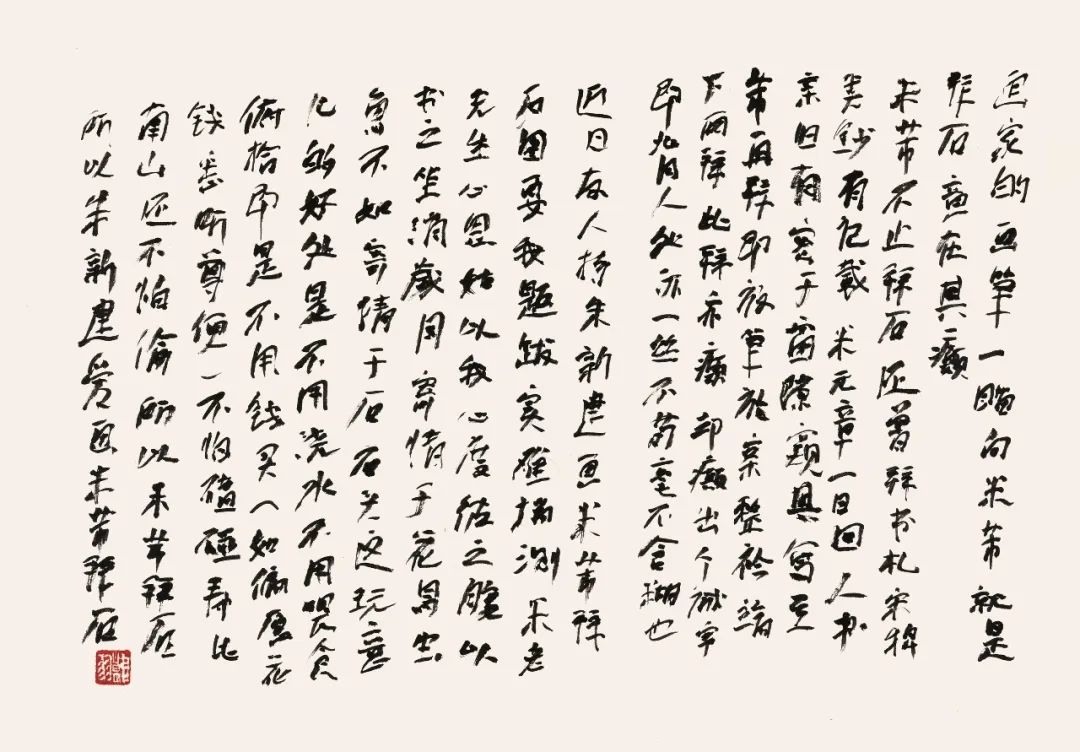 画家的画笔一瞄向米芾就是
拜石 意在其癫
米芾不止拜石还曾拜书札宋稗
类钞有记载 米元章一日回人书
亲旧有密于窗隙窥其写至
芾再拜即放笔於案整衿端
下两拜 此拜亦癫 却癫出个诚字
即背人处亦一丝不苟毫不含糊也
近日友人持朱新建画米芾拜
石图要我题跋实难揣测米老
先生心思姑以我心度彼之腹以
书之坐消岁月寄情于花鸟虫
鱼不如寄情于石石头这玩意
儿的好处是不用浇水不用喂食
俯拾即是不用钱买(如偏愿花
钱悉听尊便)不怕磕碰寿比
南山还不怕偷所以米芾拜石
所以朱新建爱画米芾拜石